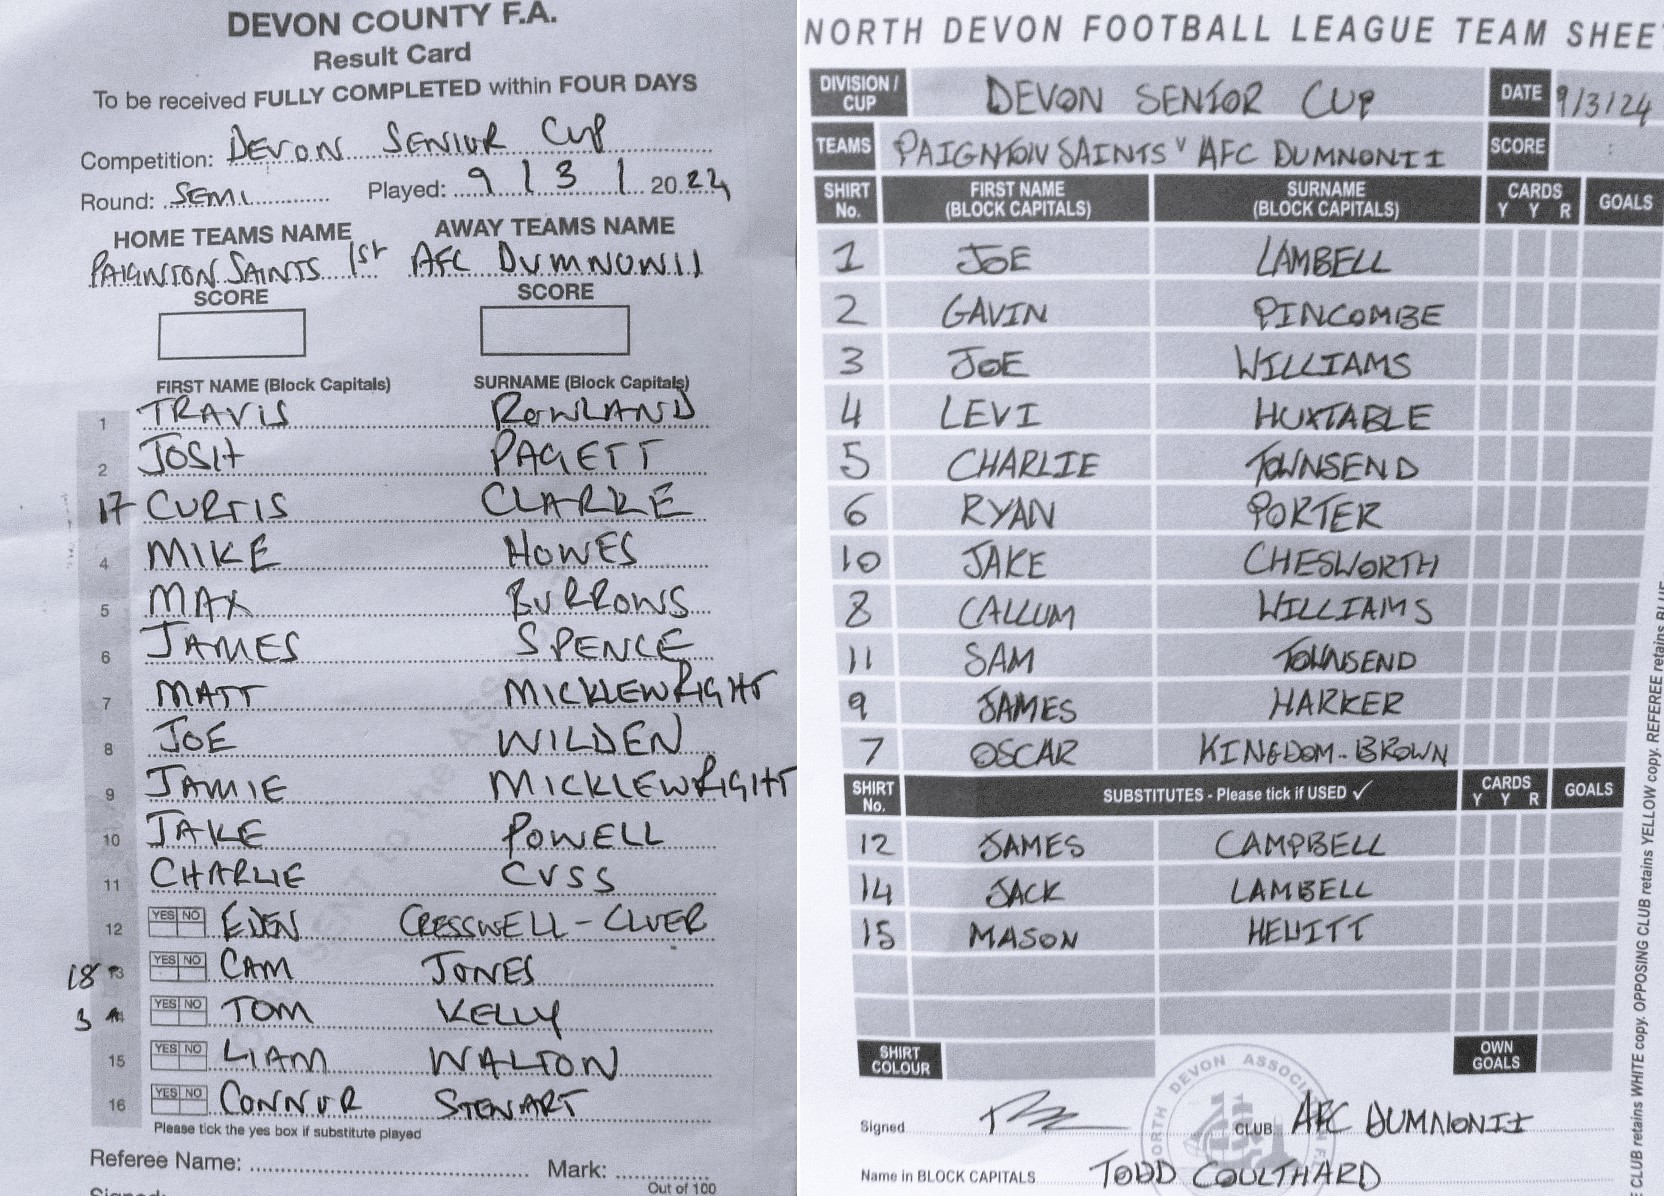 DEVON COUNTY F.A.
Result Card
To be received FULLY COMPLETED within FOUR DAYS
Competition: DEVON SENIOR CUP
Round: SEMI Played: 9 / 3 / 2024
HOME TEAMS NAME AWAY TEAMS NAME
PAIGNTON SAINTS 1ST AFC DUMNONII
SCORE SCORE
FIRST NAME (Block Capitals) SURNAME (Block Capitals)
1 TRAVIS ROWLAND
2 JOSH PAGETT
17 CURTIS CLARKE
4 MIKE HOWES
5 MAX BURROWS
6 JAMES SPENCE
7 MATT MICKLEWRIGHT
8 JOE WILDEN
9 JAMIE MICKLEWRIGHT
10 JAKE POWELL
11 CHARLIE CUSS
12 YES NO EDEN CRESSWELL-CLUER
18 13 YES NO CAM JONES
3 YES NO TOM KELLY
15 YES NO LIAM WALTON
16 YES NO CONNOR STEWART
Please tick the yes box if substitute played
Referee Name: Mark:
Out of 100
NORTH DEVON FOOTBALL LEAGUE TEAM SHEET
DIVISION / CUP DEVON SENIOR CUP DATE 9/3/24
TEAMS PAIGNTON SAINTS V AFC DUMNONII SCORE :
SHIRT No. FIRST NAME (BLOCK CAPITALS) SURNAME (BLOCK CAPITALS) CARDS Y Y R GOALS
1 JOE LAMBELL
2 GAVIN PINCOMBE
3 JOE WILLIAMS
4 LEVI HUXTABLE
5 CHARLIE TOWNSEND
6 RYAN PORTER
10 JAKE CHESWORTH
8 CALLUM WILLIAMS
11 SAM TOWNSEND
9 JAMES HARKER
7 OSCAR KINGDOM-BROWN
SHIRT No. SUBSTITUTES - Please tick if USED ✓ CARDS Y Y R GOALS
12 JAMES CAMPBELL
14 JACK LAMBELL
15 MASON HEWITT
SHIRT COLOUR OWN GOALS
NORTH DEVON ASSOCI
Signed CLUB AFC DUMNONII
Name in BLOCK CAPITALS TODD COULTHARD
CLUB retains WHITE copy. OPPOSING CLUB retains YELLOW copy. REFEREE retains BLUE